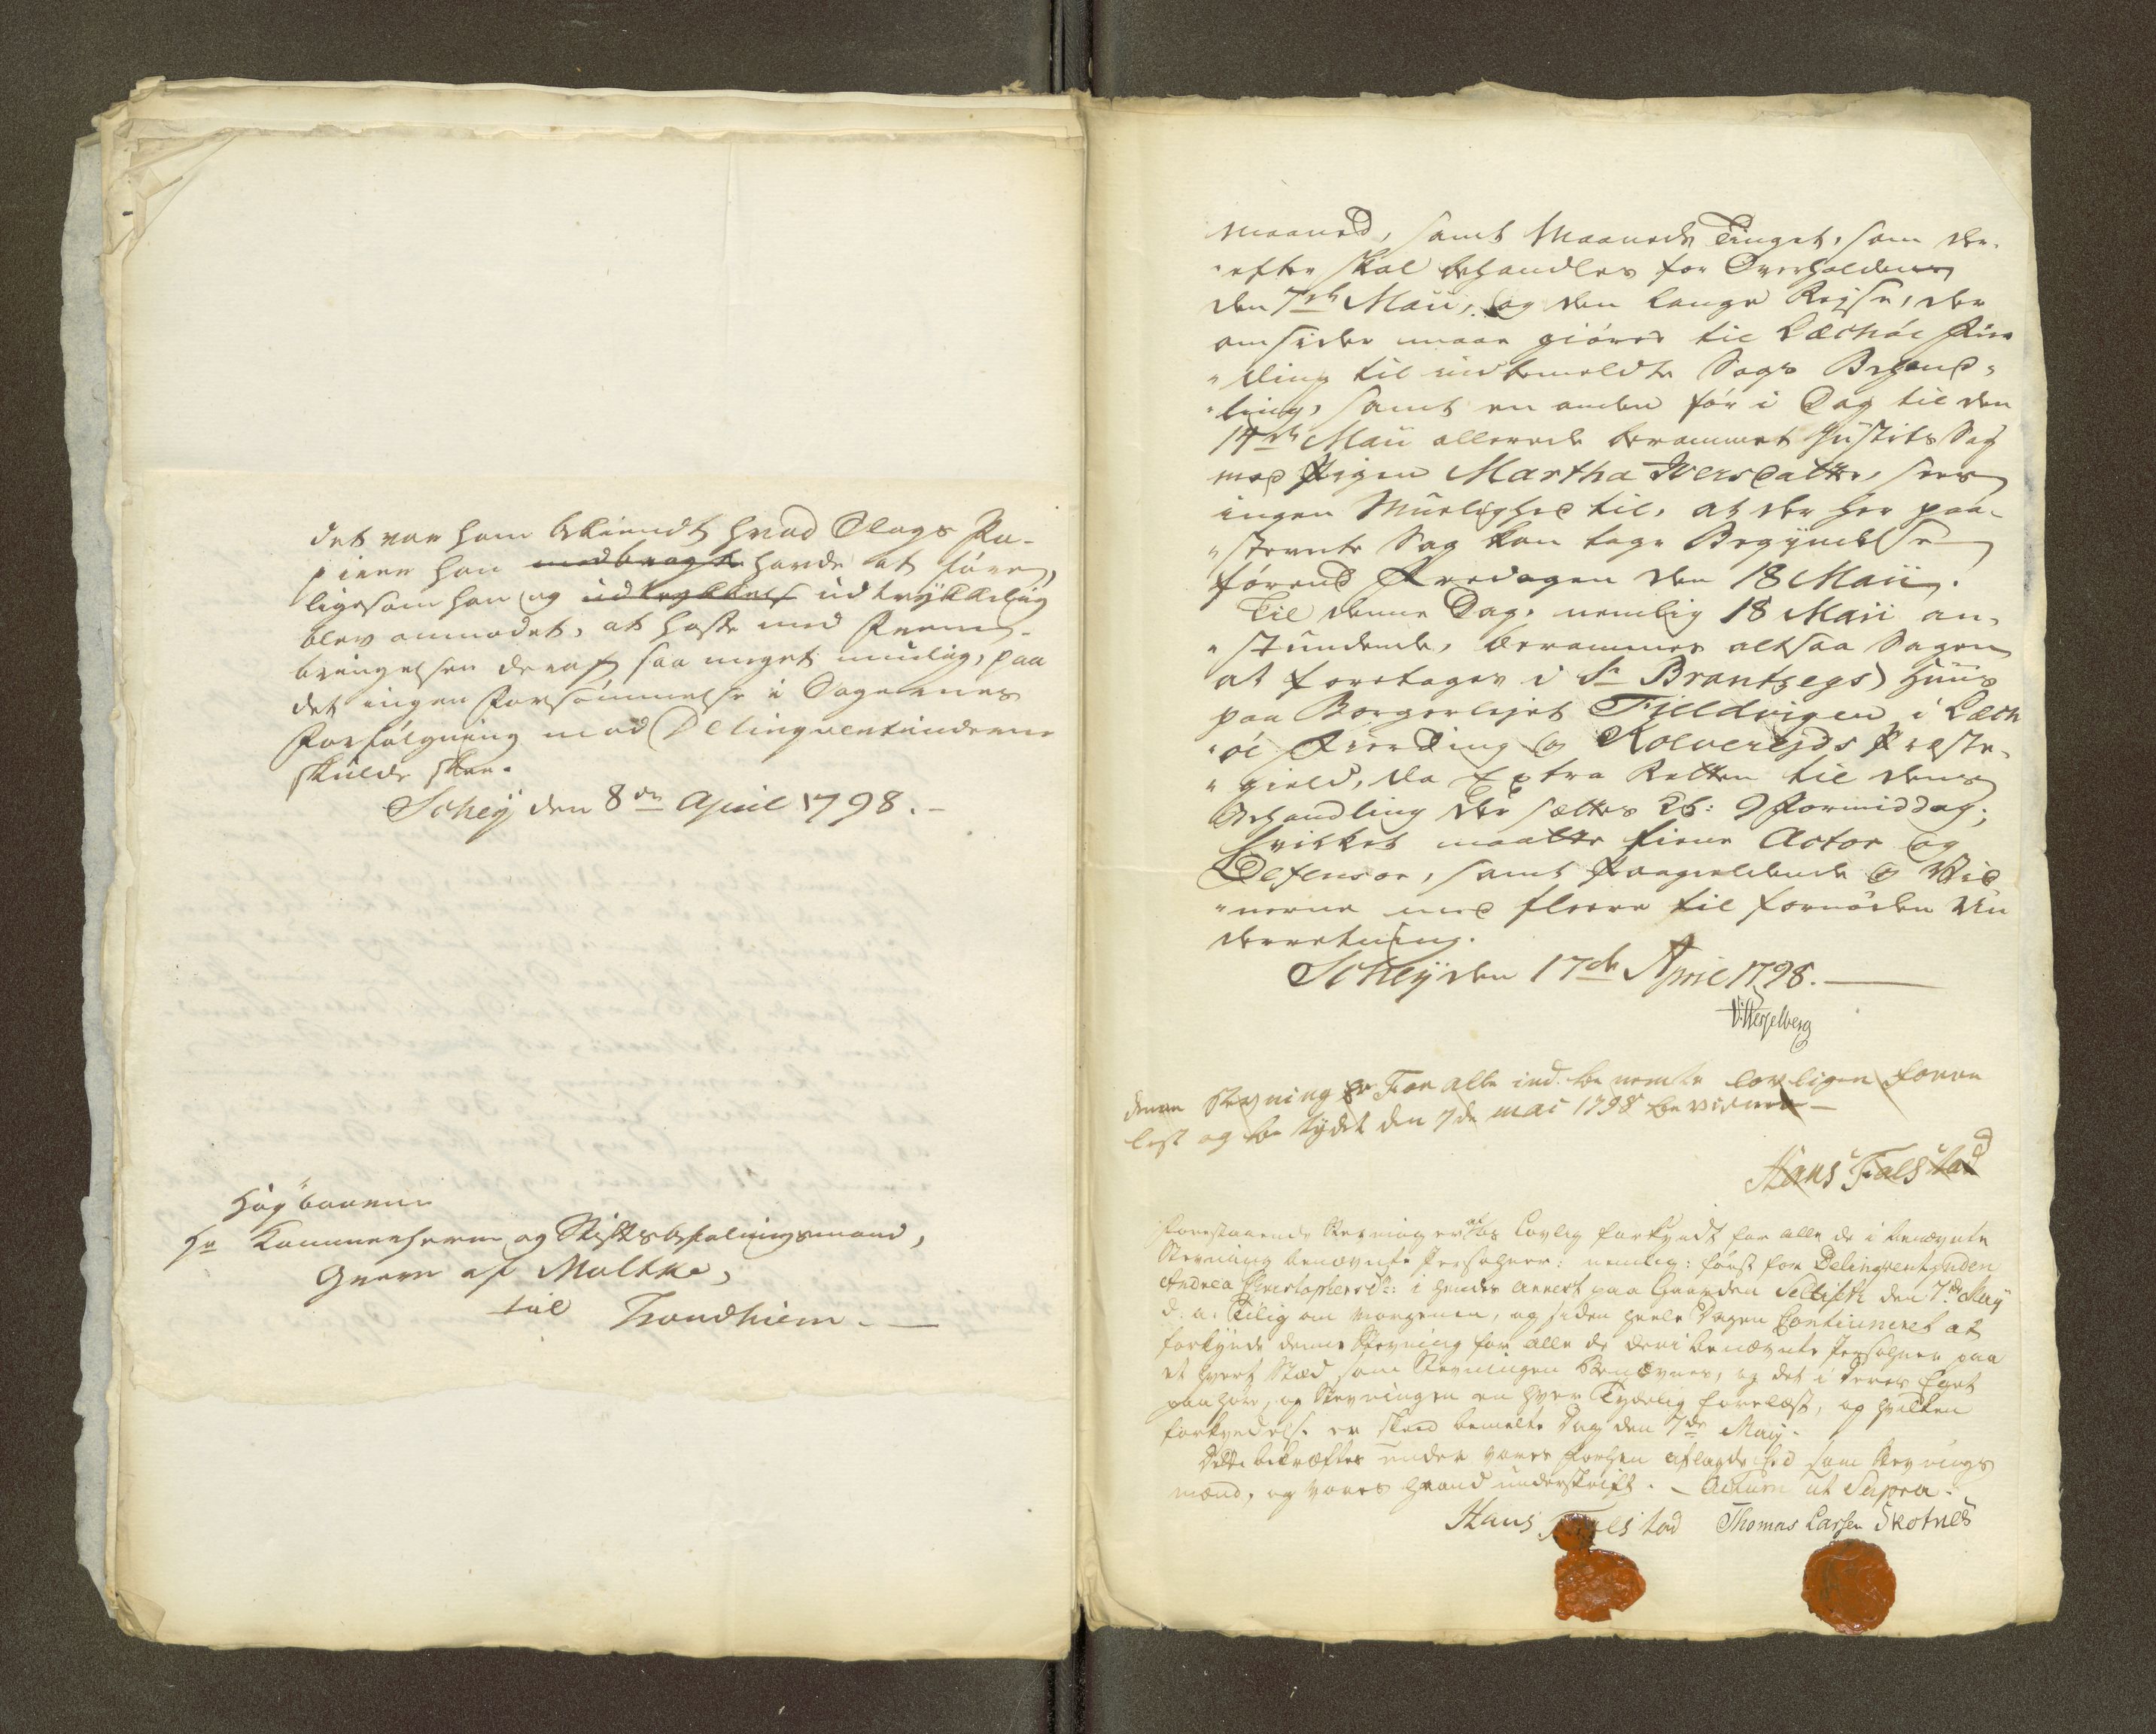 det var ham bekiendt hvad Slags Pa-
pierer han medbragte havde at føre,
ligesom han og udtrykkel udtrykkelig
blev anmodet, at haste med Frem-
bringelsen deraf saa meget muelig, paa
det ingen Forsømmelse i Sagernes
Forfølgning mod Delinqventinderne
skulde skee.
Schey den 8de April 1798.-
Høybaarne
Hr Kammerherre og Stiftsbefalingsmand,
Greve af Moltke,
til Trondhiem.-
Maaned, samt Maaneds Tinget, som der-
"efter skal behandles for Overhalden
den 7de Maii, og den lange Rejse, der
omsider maae giøres til Læchøe Fier
"ding til indbemeldte Sags Behand-
"ling, samt en anden før i Dag til den
14de Maii allerede berammet Justits Sag
mod Pigen Martha Iversdatter, sees
ingen Muelighed til, at der her paa-
"stevnte Sag kan tage Begyndelse
førend Fredagen den 18 Maii.
Til denne Dag, nemlig 18 Maii an-
"stundende, berammes altsaa Sagen
at foretages i Sr Brantzegs Huus
paa Borgerlejet Fieldvigen i Læch
"øe Fierding og Kolverejds Præste-
"gield, da Extra Retten til dens
Behandling der sættes Kl: 9 Formiddag;
hvilket maatte tiene Actor og
Defensor, samt Paagieldende og Vid
"nerne med fleere til fornøden Un
derretning.
Schey den 17de April 1798.
Wesselberg
denne Stevning Er For alle ind be nevnte lovligen forre
lest og be tydet den 7de mai 1798 be vidnes -
Hans Falstad
Forestaaende Stevning er af os Lovlig forkyndt for alle de i benævnte
Stevning benævnte Persohner: nemlig: først for Delinqventynden
Andrea Christophersd: i hendes arrest paa Gaarden den 7de May
d: a: Tilig om morgenen, og siden heele Dagen Continueret at
forkynde denne Stevning for alle de deri benævnte Persohner paa
et hvert Stæd som Stevningen Benævner, og det i deres Eget
paahør, og Stevningen en hver Tydelig forelæst, og hvilken
forkyndelse er skeed bemelte Dag den 7de May.
Dette bekræftes under vores forhen aflagde Eed som Stevnings
mænd, og vores haand underskrift. - Actum ut Supra.
Hans Falstad Thomas Larsen Skotnes